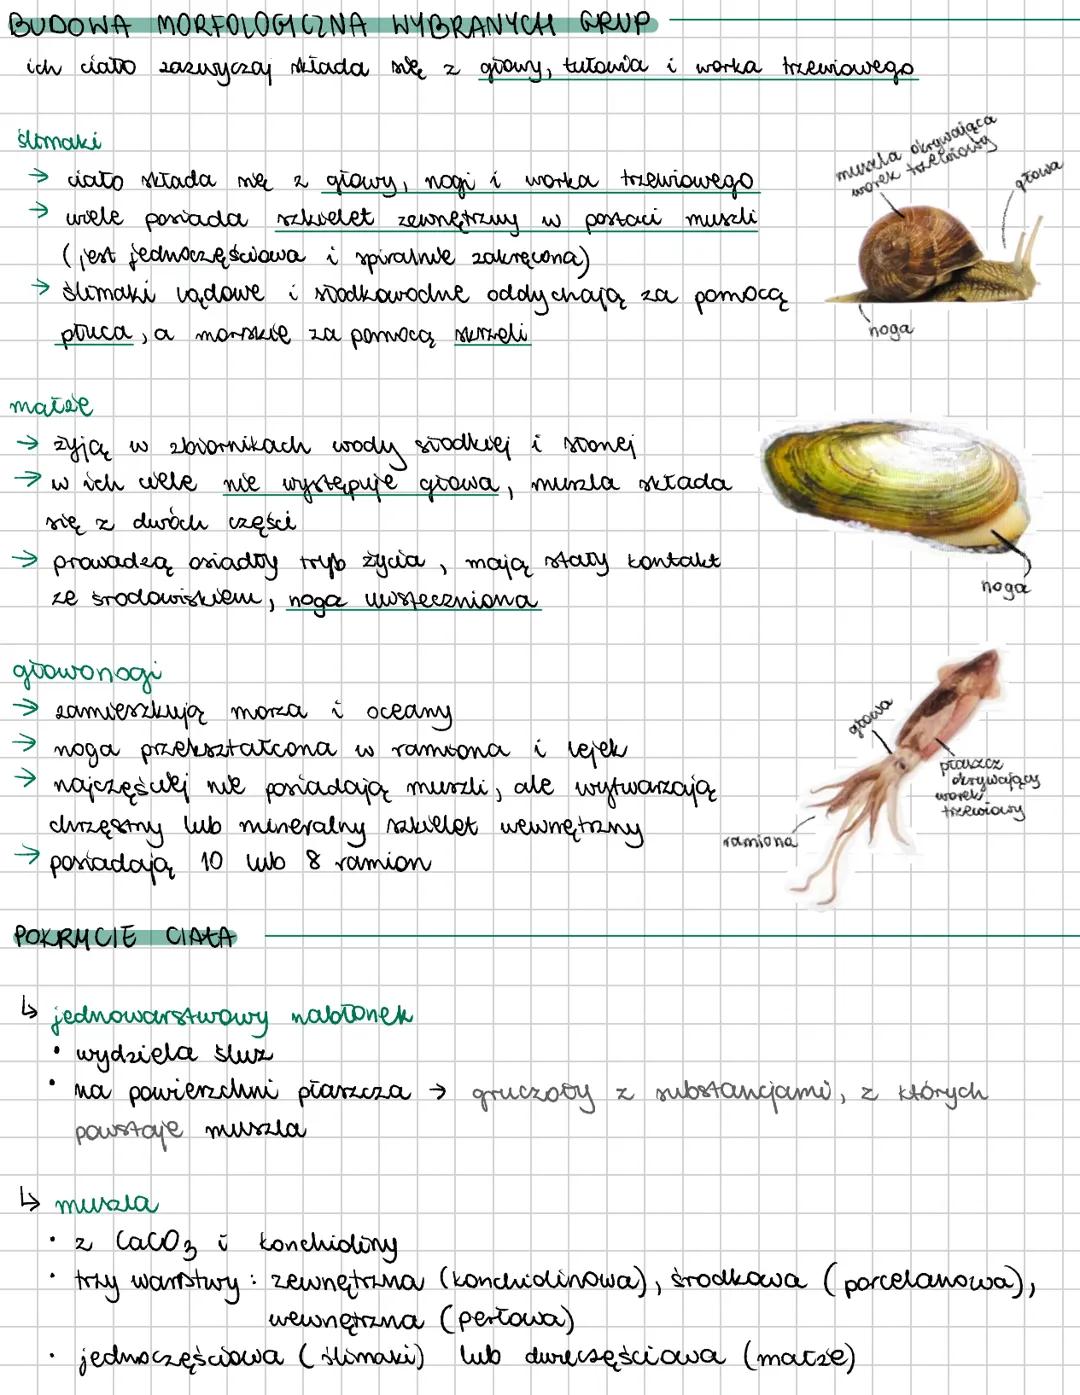 BUDOWA MORFOLOGICZNA WYBRANYCH GRUP
ich ciało zazwyczaj składa się z głowy, tułowia i worka trzewiowego
ślimaki
→ ciało składa się z głowy, nogi i worka trzewiowego
→ wiele posiada szkielet zewnętrzny w postaci muszli
(jest jednoczęściowa i spiralnie zakręcona)
→ ślimaki lądowe i słodkowodne oddychają za pomocą
płuca, a morskie za pomocą skrzeli
muszla okrywająca
worek trzewiowy
głowa
noga
małże
→ żyją w zbiornikach wody słodkiej i słonej
→ w ich ciele nie występuje głowa, muszla składa
się z dwóch części
→ prowadzą osiadły tryb życia, mają stały kontakt
ze środowiskiem, noga uwsteczniona
noga
głowonogi
→ zamieszkują morza i oceany
→ noga przekształcona w ramiona i lejek
→ najczęściej nie posiadają muszli, ale wytwarzają
chrzęstny lub mineralny szkielet wewnętrzny
→ posiadają 10 lub 8 ramion
głowa
płaszcz
okrywający
worek
trzewiowy
ramiona
POKRYCIE CIAŁA
↳ jednowarstwowy nabłonek
• wydziela śluz
• na powierzchni płaszcza → gruczoły z substancjami, z których
powstaje muszla
↳ muszla
• z CaCO3 i konchioliny
• trzy warstwy: zewnętrzna (konchiolinowa), środkowa (porcelanowa),
wewnętrzna (perłowa)
• jednoczęściowa (ślimaki) lub dwuczęściowa (małże)